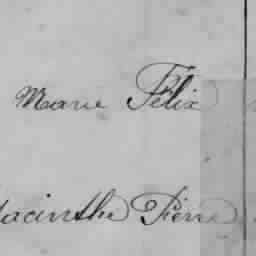 Marie Félix
Hacinthe Pierre